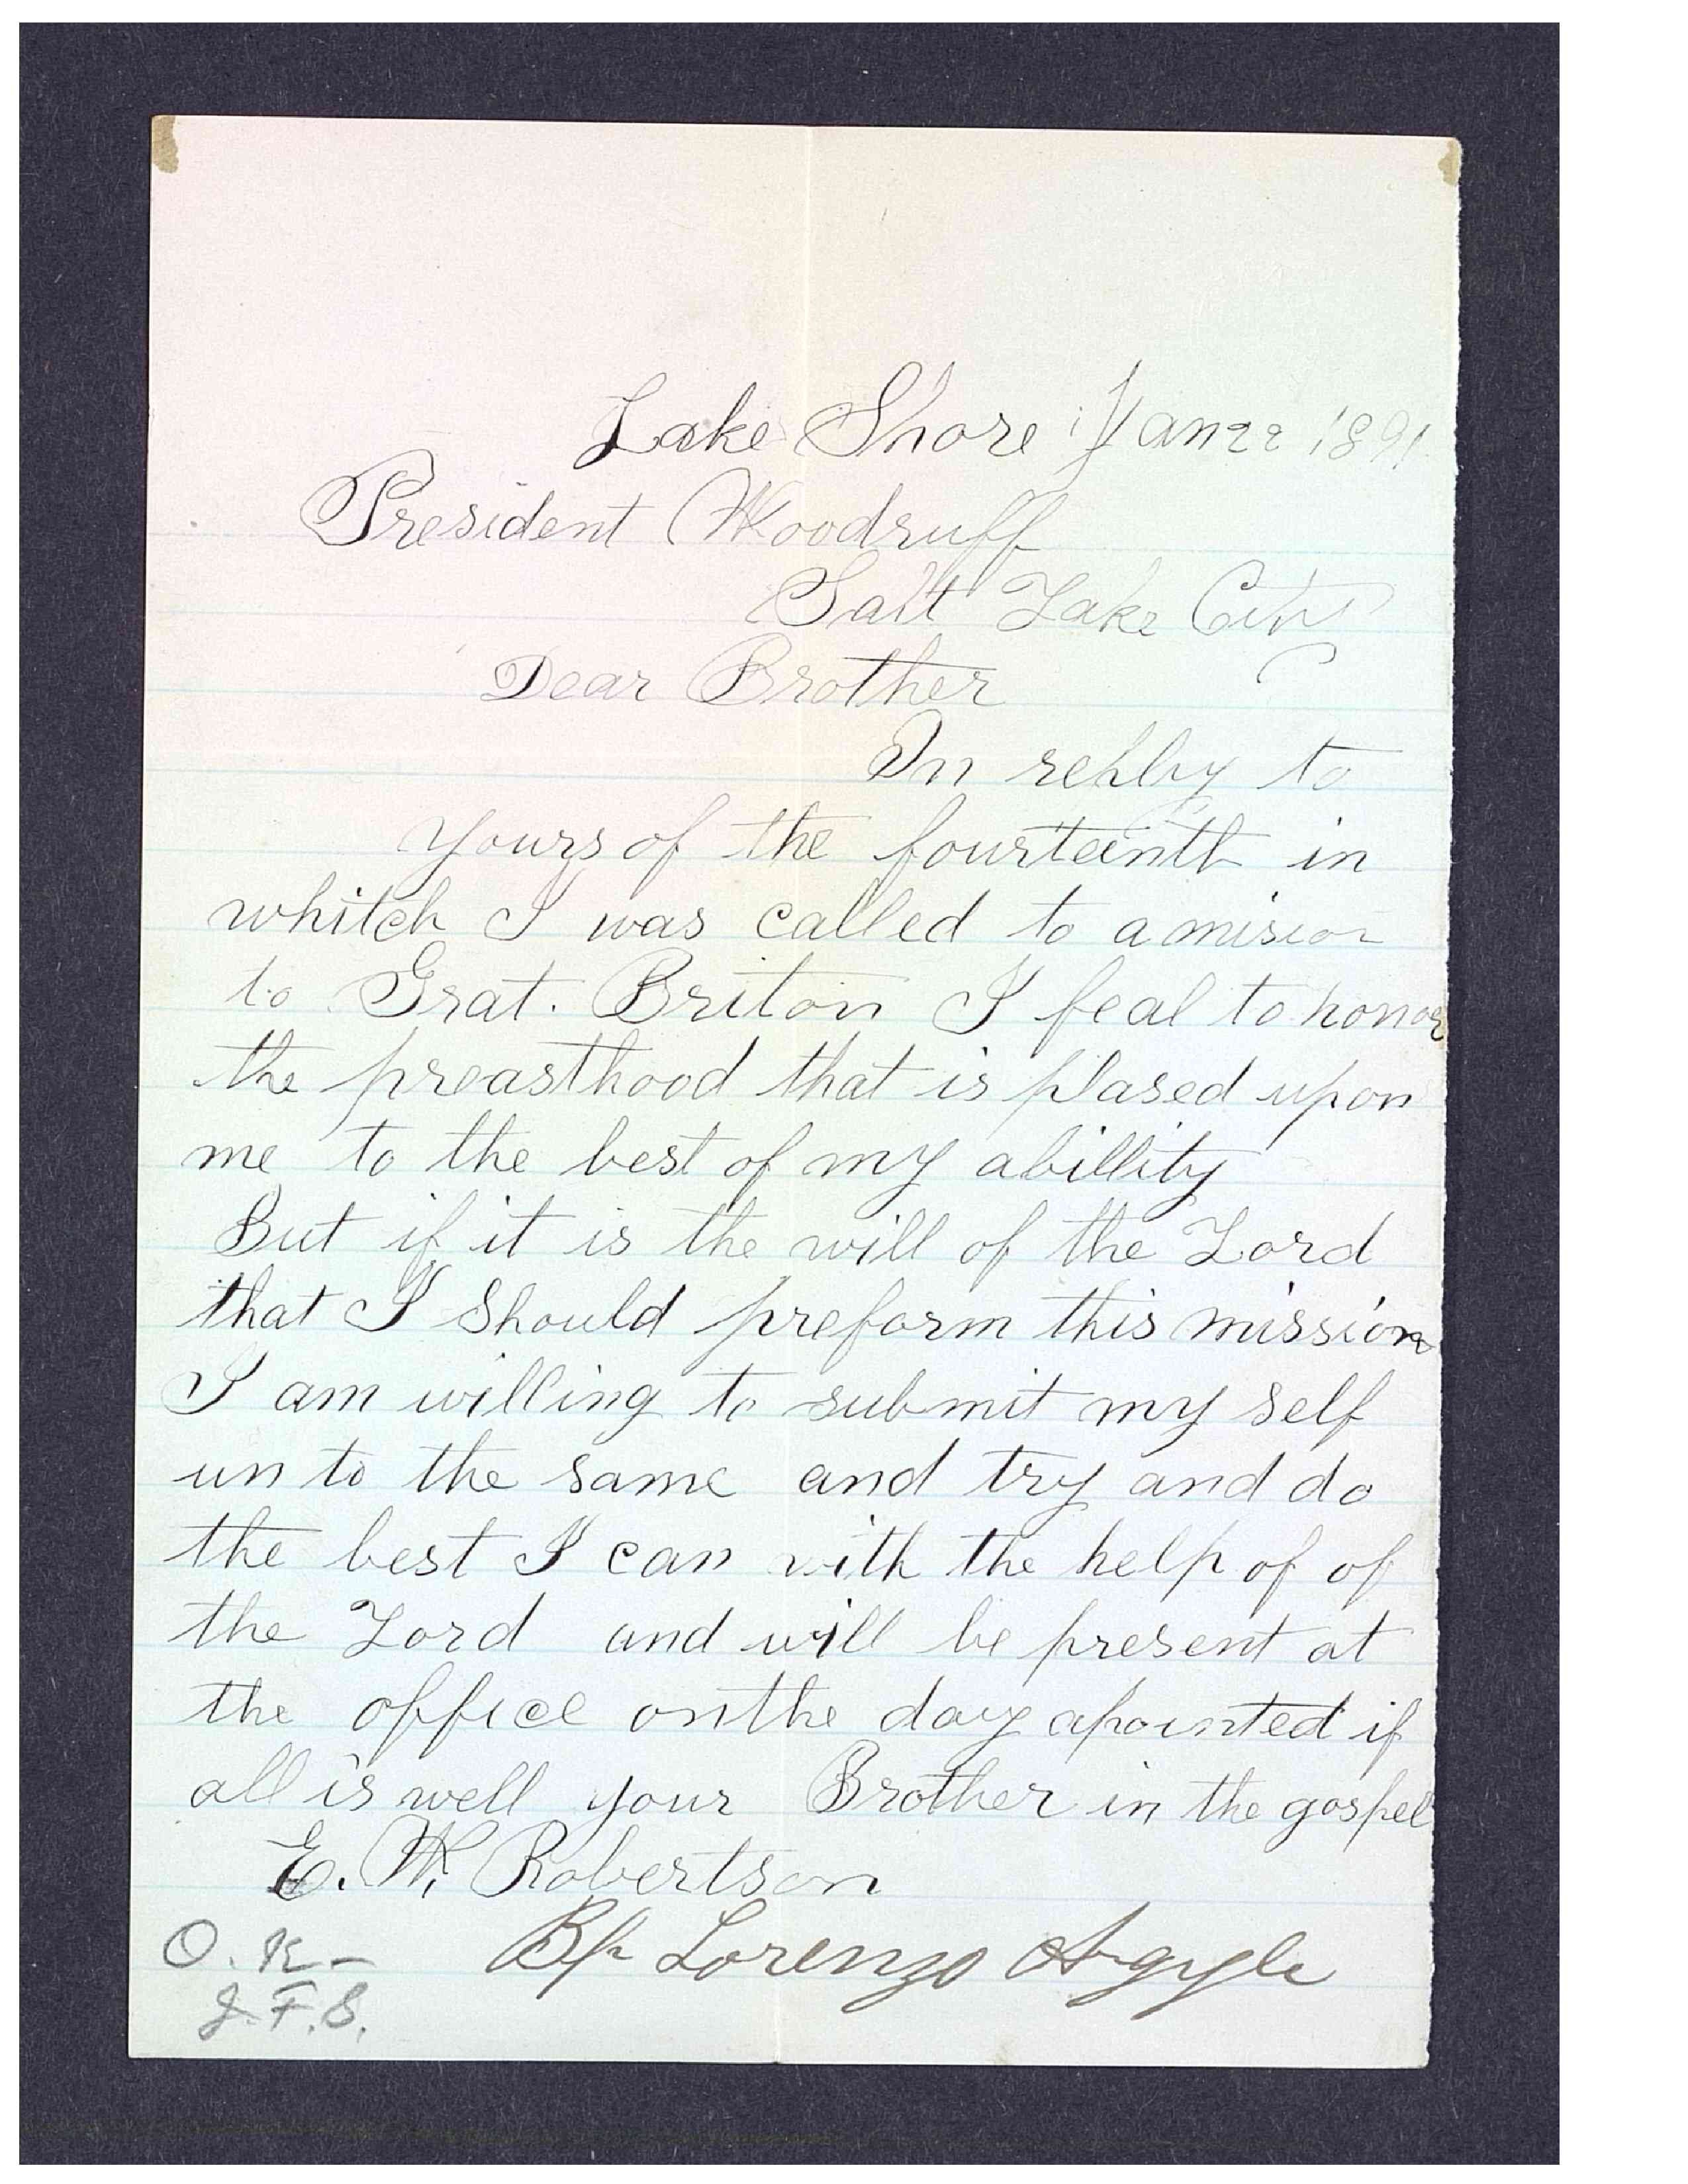 Lake Shore Jan 22 1891
President Woodruff
Salt Lake City
Dear Brother
In reply to
yours of the fourteenth in
whitch I was called to a mision
to Grat. Briton I feal to honor
the preasthood that is plased upon
me to the best of my abillity
But if it is the will of the Lord
that I Should preform this mission
I am willing to submit my self
un to the same and try and do
the best I can with the help of of
the Lord and will be present at
the office on the day apointed if
all is well your Brother in the gospel
E. W. Robertson
Bp Lorenzo Argyle
O. K-
J. F. S.